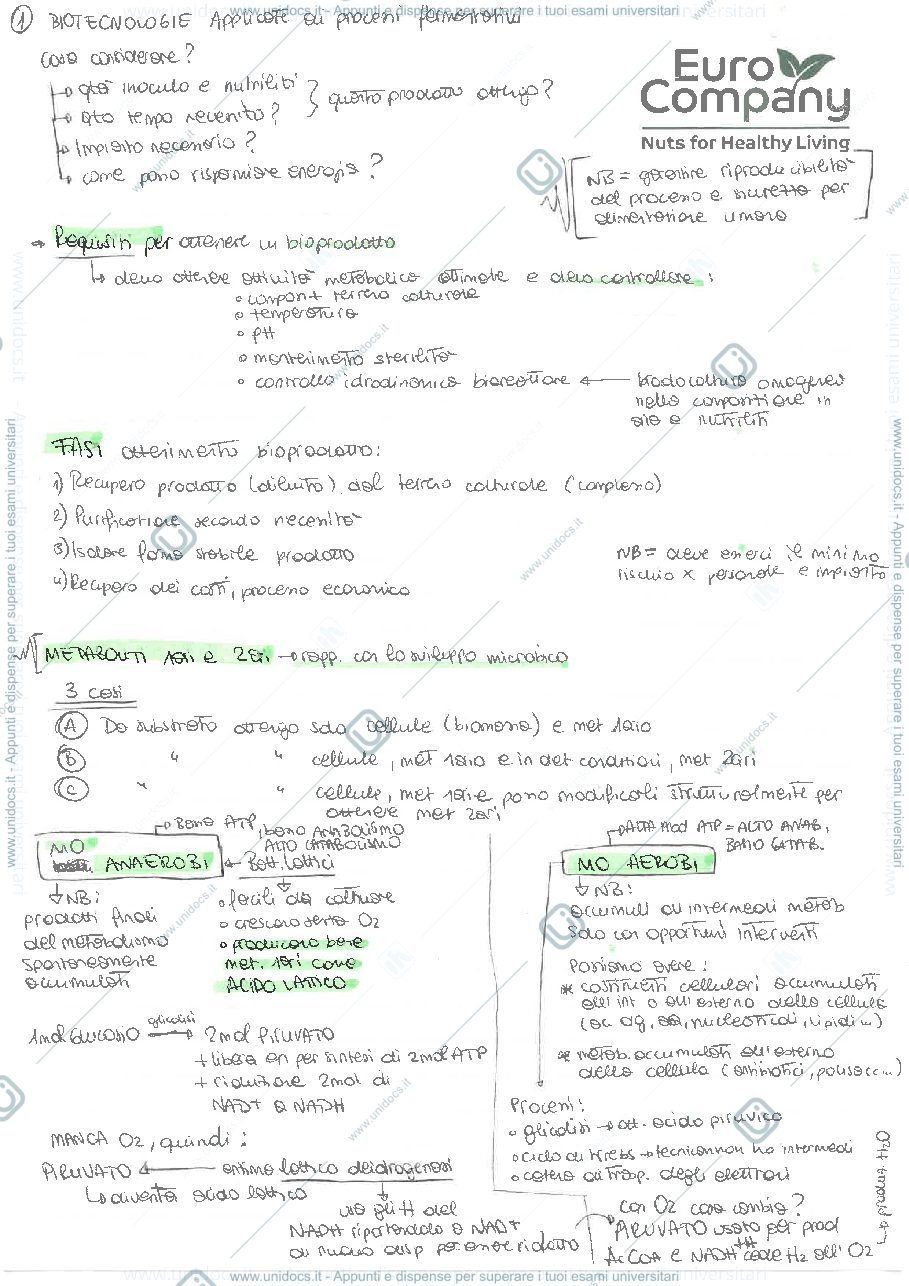 www.unidocs.it - Appunti e dispense per superare i tuoi esami universitari
① BIOTECNOLOGIE Applicate ai processi fermentativi
Cosa considerare?
qtà inoculo e nutrienti
qto tempo necessito?
quanto prodotto ottengo?
Impianto necessario?
come posso risparmiare energia?
Euro Company
Nuts for Healthy Living
NB = garantire riproducibilità
del processo e sicurezza per
alimentazione umana
→ Requisiti per ottenere un bioprodotto
↳ devo ottenere attività metabolica ottimale e devo controllare:
° compon+ terreno colturale
° temperatura
° pH
° mantenimento sterilità
° controllo idrodinamico bioreattore ← brodocoltura omogeneo
nella composizione in
aria e nutrienti
FASI ottenimento bioprodotto:
1) Recupero prodotto (diluito) dal terreno colturale (complesso)
2) Purificazione secondo necessità
3) Isolare forma stabile prodotto
4) Recupero dei costi, processo economico
NB = deve esserci il minimo
rischio x personale e impianto
METABOLITI 1ari e 2ari → rapp. con lo sviluppo microbico
3 casi
Ⓐ Da substrato ottengo solo cellule (biomassa) e met 1ario
Ⓑ " " cellule, met 1ario e in det condizioni, met 2ari
Ⓒ " " cellule, met 1ari e posso modificarli strutturalmente per
ottenere met 2ari
Basso ATP, basso ANABOLISMO
ALTO CATABOLISMO
MO ANAEROBI ← Batt. lattici
↓ NB:
prodotti finali
del metabolismo
spontaneamente
accumulati
° facili da coltivare
° crescono senza O2
° producono bene
met. 1ari come
ACIDO LATTICO
1mol GLUCOSIO glicolisi → 2mol PIRUVATO
+ libera en per sintesi di 2mol ATP
+ riduzione 2mol di
NAD+ a NADH
MANCA O2, quindi:
PIRUVATO ← enzima lattico deidrogenasi
↳ diventa acido lattico
usa gli H del
NADH riportandolo a NAD+
di nuovo disp per essere ridotto
ALTA prod ATP = ALTO ANAB,
BASSO CATAB.
MO AEROBI
↓ NB:
accumuli di intermedi metab
solo con opportuni interventi
Possiamo avere:
* costituenti cellulari accumulati
all'int o all'esterno della cellula
(ac. org, aa, nucleotidi, lipidi...)
* metab. accumulati all'esterno
della cellula (antibiotici, polisacc...)
Processi:
° glicolisi → ott. acido piruvico
° ciclo di Krebs → tecnicamen no intermedi
° catena di trasp. degli elettroni
con O2 cosa cambia?
PIRUVATO usato per prod
AcCOA e NADH+H+ cede H2 all'O2
www.unidocs.it